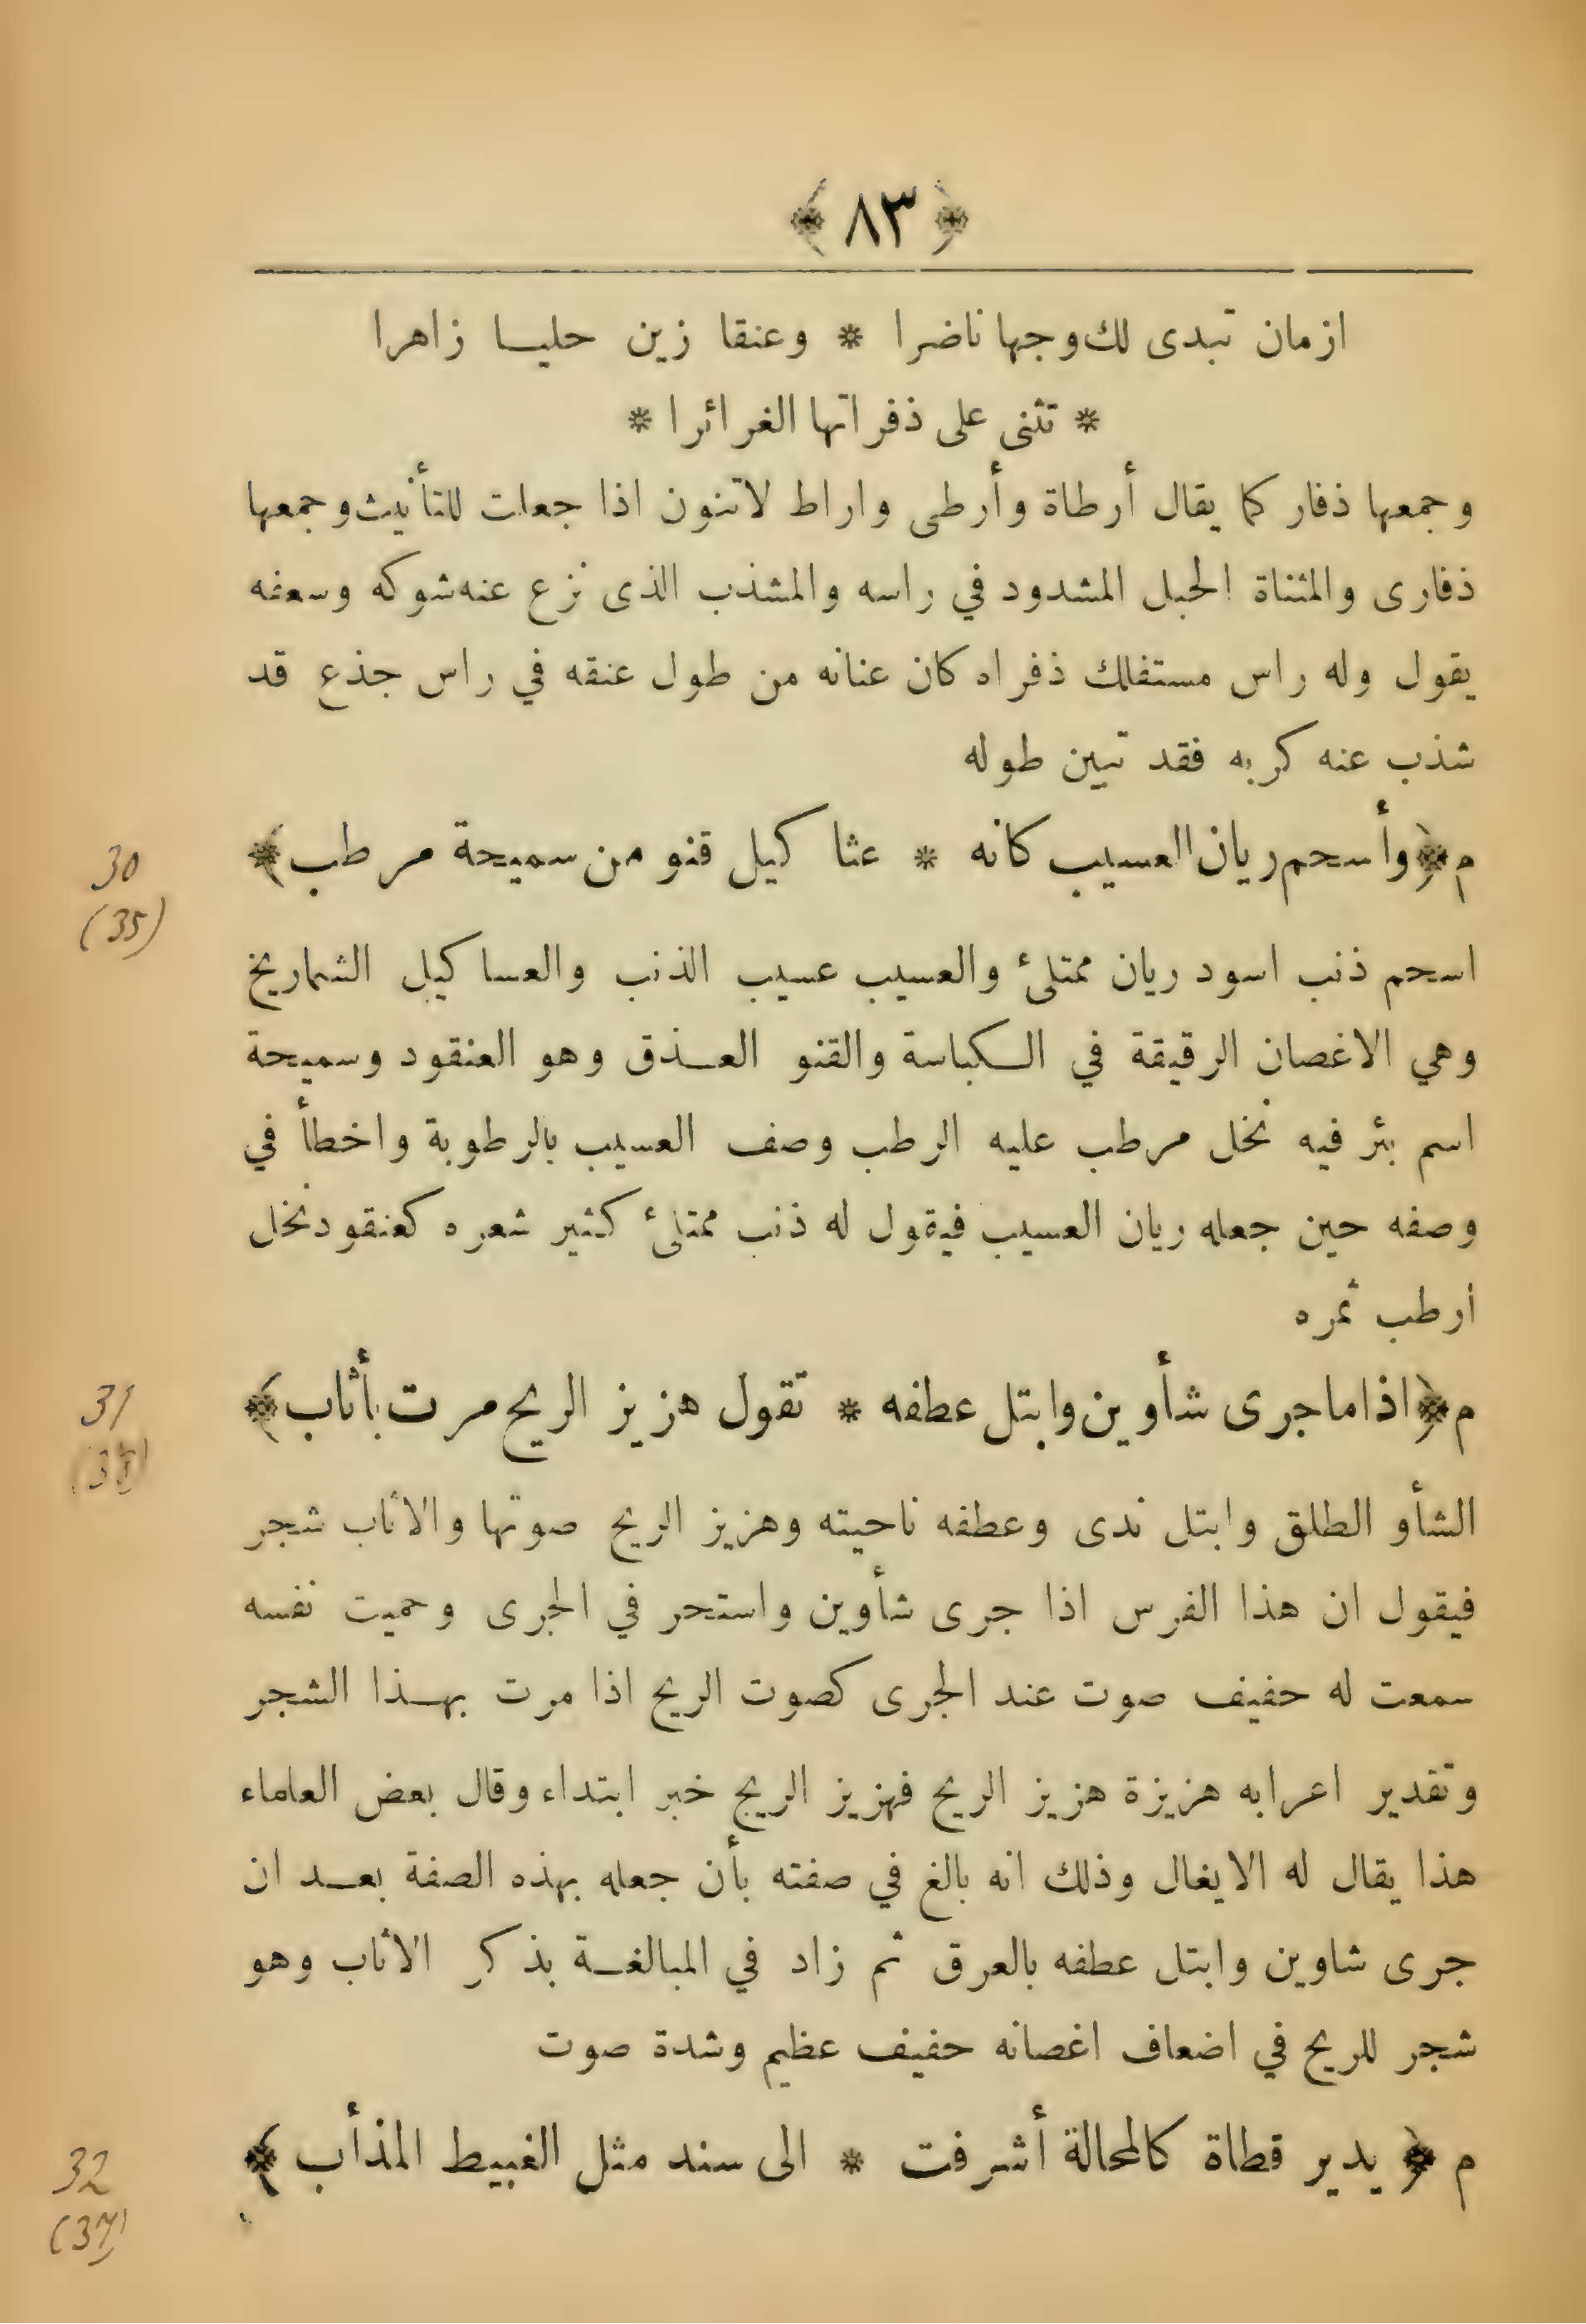 ﴿ ٨٣ ﴾
ازمان تبدى لك وجها ناضرا * وعنقا زين حليا زاهرا
* تثنى على ذفراتها الغرائرا *
وجمعها ذفار كما يقال أرطاة وأرطى واراط لاتنون اذا جعلت للتأنيث وجمعها
ذفارى والمثناة الحبل المشدود في راسه والمشذب الذى نزع عنه شوكه وسعفه
يقول وله راس مستفلك ذفراه كان عنانه من طول عنقه في راس جذع قد
شذب عنه كربه فقد تبين طوله
م ﴿ وأسحم ريان العسيب كانه * عثا كيل قنو من سميحة مرطب ﴾
30
(35)
اسحم ذنب اسود ريان ممتلئ والعسيب عسيب الذنب والعسا كيل الشماريخ
وهي الاغصان الرقيقة في الكباسة والقنو العذق وهو العنقود وسميحة
اسم بئر فيه نخل مرطب عليه الرطب وصف العسيب بالرطوبة واخطأ في
وصفه حين جعله ريان العسيب فيقول له ذنب ممتلئ كثير شعره كعنقود نخل
أرطب ثمره
م ﴿ اذا ما جرى شأوين وابتل عطفه * تقول هزيز الريح مرت بأثاب ﴾
31
الشأو الطلق وابتل ندى وعطفه ناحيته وهزيز الريح صوتها والاثاب شجر
فيقول ان هذا الفرس اذا جرى شأوين واستحر في الجرى وحميت نفسه
سمعت له حفيف صوت عند الجرى كصوت الريح اذا مرت بهذا الشجر
وتقدير اعرابه هزيزة هزيز الريح فهزيز الريح خبر ابتداء وقال بعض العلماء
هذا يقال له الايغال وذلك انه بالغ في صفته بأن جعله بهذه الصفة بعد ان
جرى شاوين وابتل عطفه بالعرق ثم زاد في المبالغة بذكر الاثاب وهو
شجر للريح في اضعاف اغصانه حفيف عظيم وشدة صوت
م ﴿ يدير قطاة كالمحالة أشرفت * الى سند مثل الغبيط المذأب ﴾
32
(37)